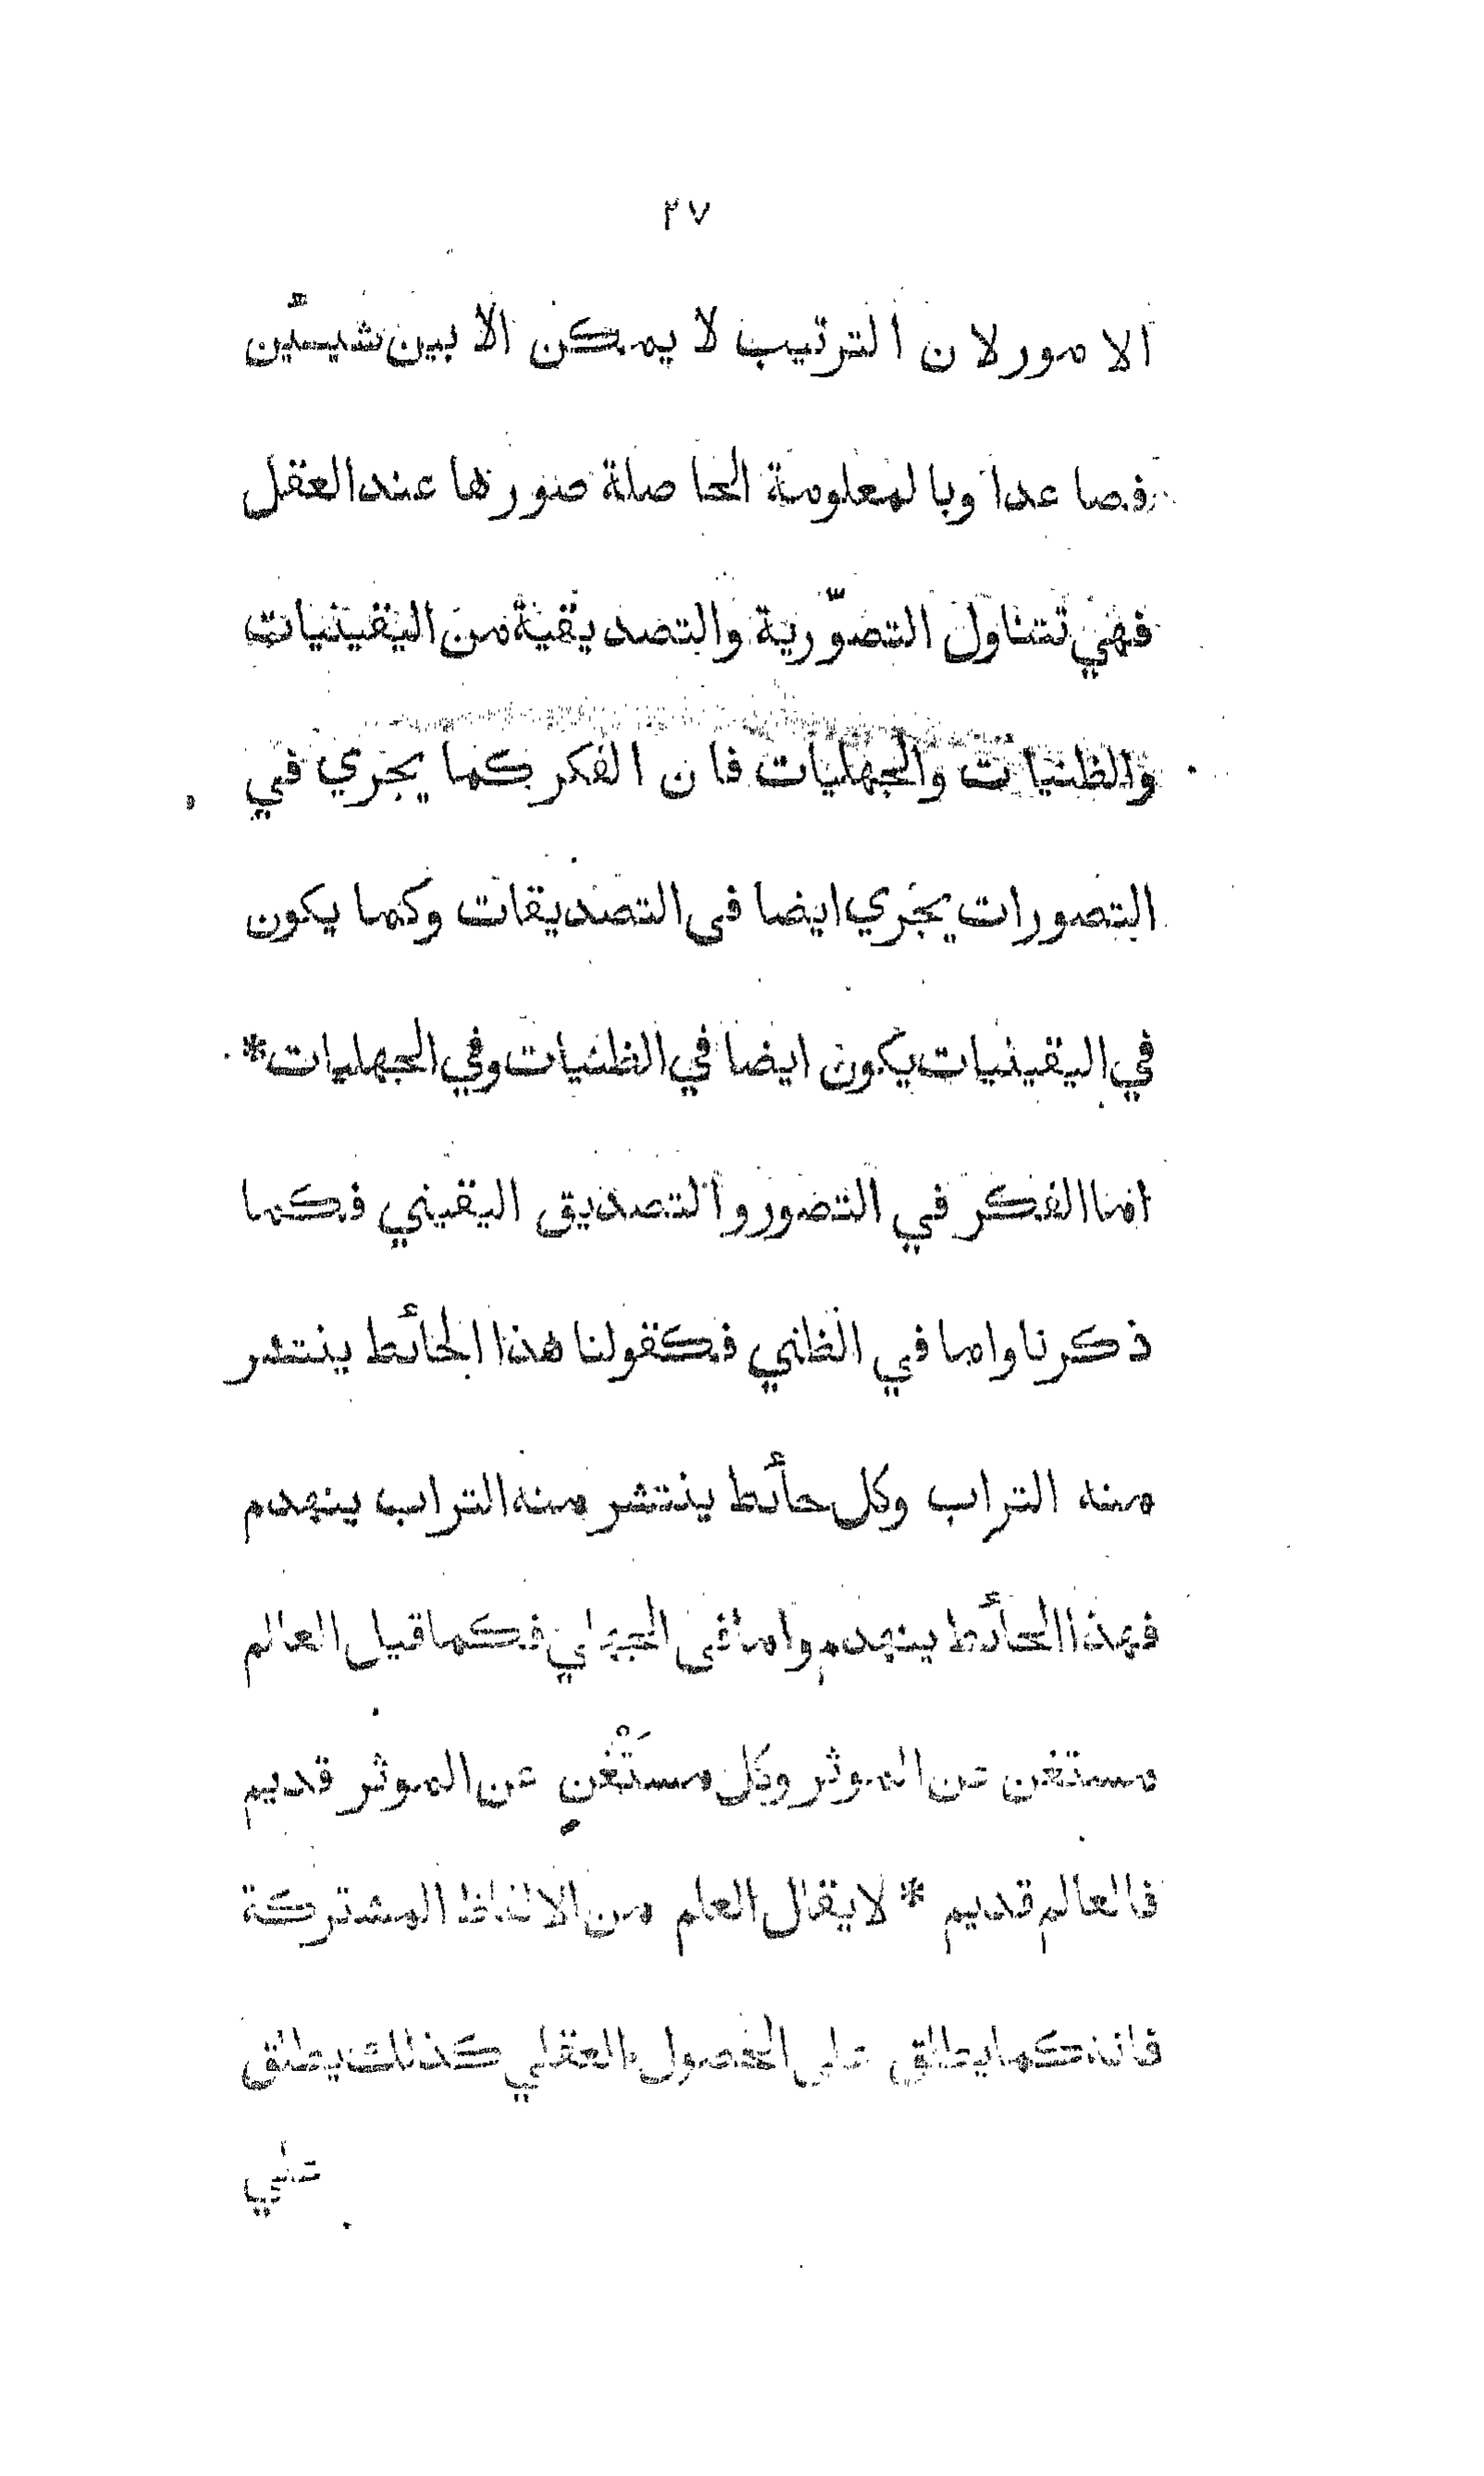 ٢٧
الامور لان الترتيب لا يمكن الا بين شيئين
فصاعدا وبالمعلومة الحاصلة صورها عند العقل
فهي تتناول التصوّرية والتصديقية من اليقينيات
والظنيات والجهليات فان الفكر كما يجري في
التصورات يجري ايضا في التصديقات وكما يكون
في اليقينيات يكون ايضا في الظنيات وفي الجهليات *
اما الفكر في التصور والتصديق اليقيني فكما
ذكرنا واما في الظني فكقولنا هذا الحائط ينتشر
منه التراب وكل حائط ينتشر منه التراب ينهدم
فهذا الحائط ينهدم واما في الجهلي فكما قيل العالم
مستغن عن الموثر وكل مستَغْنٍ عن الموثر قديم
فالعالم قديم * لايقال العلم من الالفاظ المشتركة
فانه كما يطلق على الحصول العقلي كذلك يطلق
علي